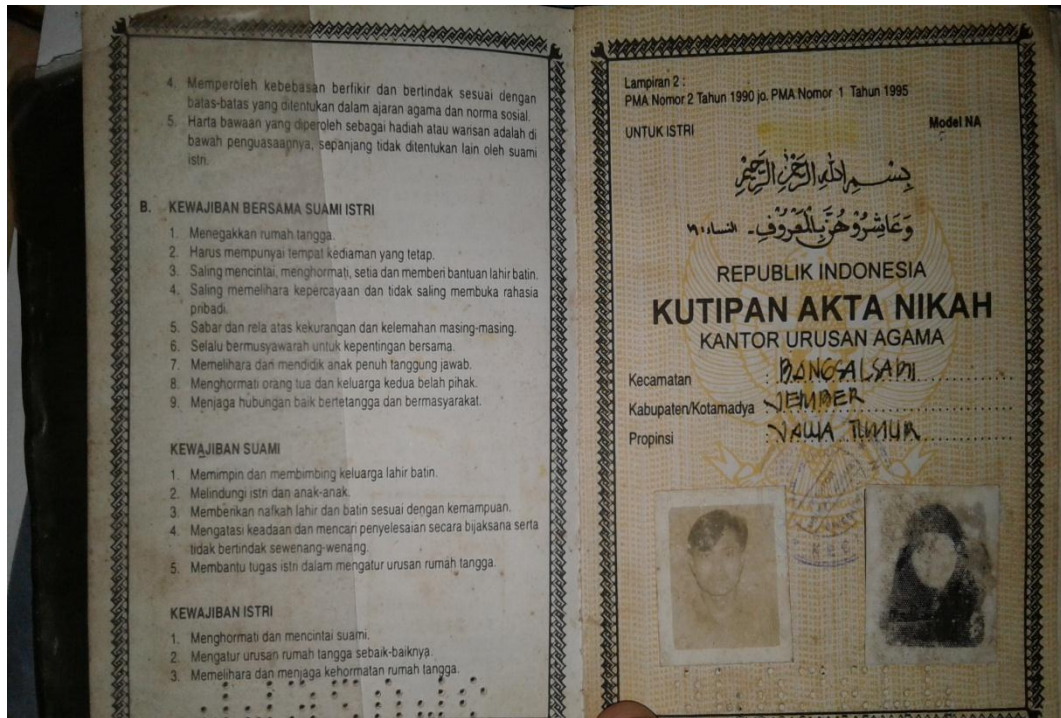 4. Memperoleh kebebasan berfikir dan bertindak sesuai dengan
batas-batas yang ditentukan dalam ajaran agama dan norma sosial.
5. Harta bawaan yang diperoleh sebagai hadiah atau warisan adalah di
bawah penguasaapnya, sepanjang tidak ditentukan lain oleh suami
istri.
B. KEWAJIBAN BERSAMA SUAMI ISTRI
1. Menegakkan rumah tangga.
2. Harus mempunyai tempat kediaman yang tetap.
3. Saling mencintai, menghormati, setia dan memberi bantuan lahir batin.
4. Saling memelihara kepercayaan dan tidak saling membuka rahasia
pribadi.
5. Sabar dan rela atas kekurangan dan kelemahan masing-masing.
6. Selalu bermusyawarah untuk kepentingan bersama.
7. Memelihara dan mendidik anak penuh tanggung jawab.
8. Menghormati orang tua dan keluarga kedua belah pihak.
9. Menjaga hubungan baik bertetangga dan bermasyarakat.
KEWAJIBAN SUAMI
1. Memimpin dan membimbing keluarga lahir batin.
2. Melindungi istri dan anak-anak.
3. Memberikan nafkah lahir dan batin sesuai dengan kemampuan.
4. Mengatasi keadaan dan mencari penyelesaian secara bijaksana serta
tidak bertindak sewenang-wenang.
5. Membantu tugas istri dalam mengatur urusan rumah tangga.
KEWAJIBAN ISTRI
1. Menghormati dan mencintai suami.
2. Mengatur urusan rumah tangga sebaik-baiknya.
3. Memelihara dan menjaga kehormatan rumah tangga.
Lampiran 2 :
PMA Nomor 2 Tahun 1990 jo. PMA Nomor 1 Tahun 1995
UNTUK ISTRI Model NA
بِسْمِ اللهِ الرَّحْمٰنِ الرَّحِيْمِ
وَعَاشِرُوْهُنَّ بِالْمَعْرُوْفِ - النساء : ١٩
REPUBLIK INDONESIA
KUTIPAN AKTA NIKAH
KANTOR URUSAN AGAMA
Kecamatan : BANGSALSARI
Kabupaten/Kotamadya : JEMBER
Propinsi : JAWA TIMUR